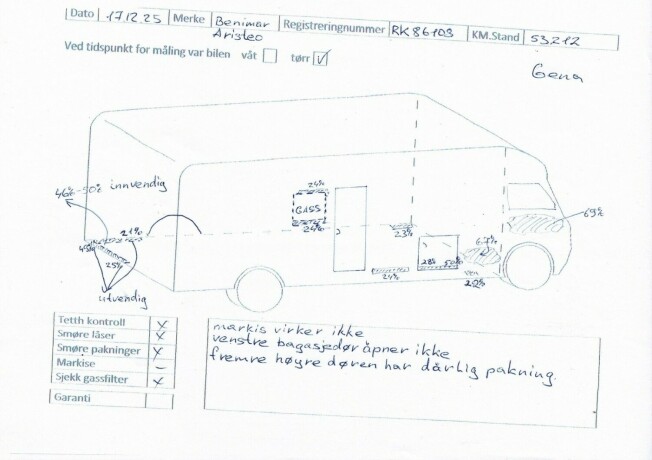 Dato 17.12.25 Merke Benimar Aristeo Registreringnummer RK86103 KM.Stand 53212
Ved tidspunkt for måling var bilen våt tørr
Gena
46%-50% innvendig
24%
GASS
24%
69%
21%
23%
67%
45%
25%
28% 50%
24%
20%
utvendig
Tetth kontroll x
Smøre låser x
Smøre pakninger x
Markise –
Sjekk gassfilter x
Garanti
markis virker ikke
venstre bagasjedør åpner ikke
fremre høyre døren har dårlig pakning.